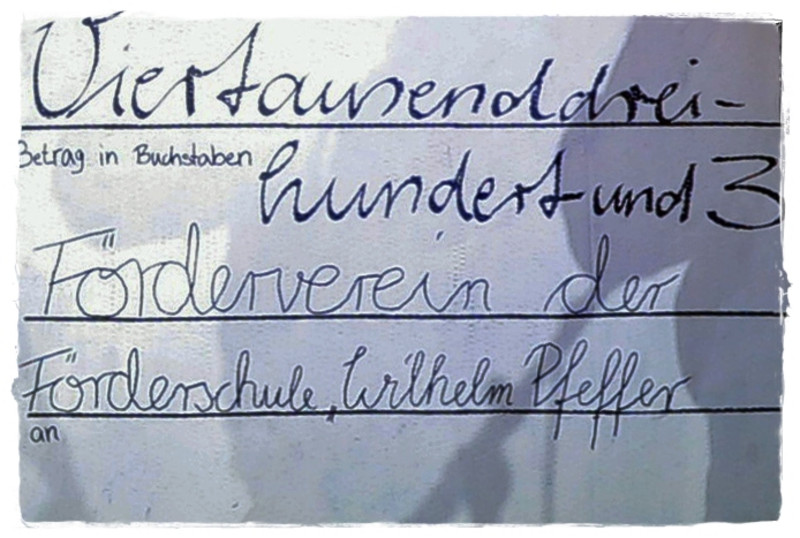 Viertausenddrei-
Betrag in Buchstaben
hundert und 3
Förderverein der
Förderschule, Wilhelm Pfeffer
an